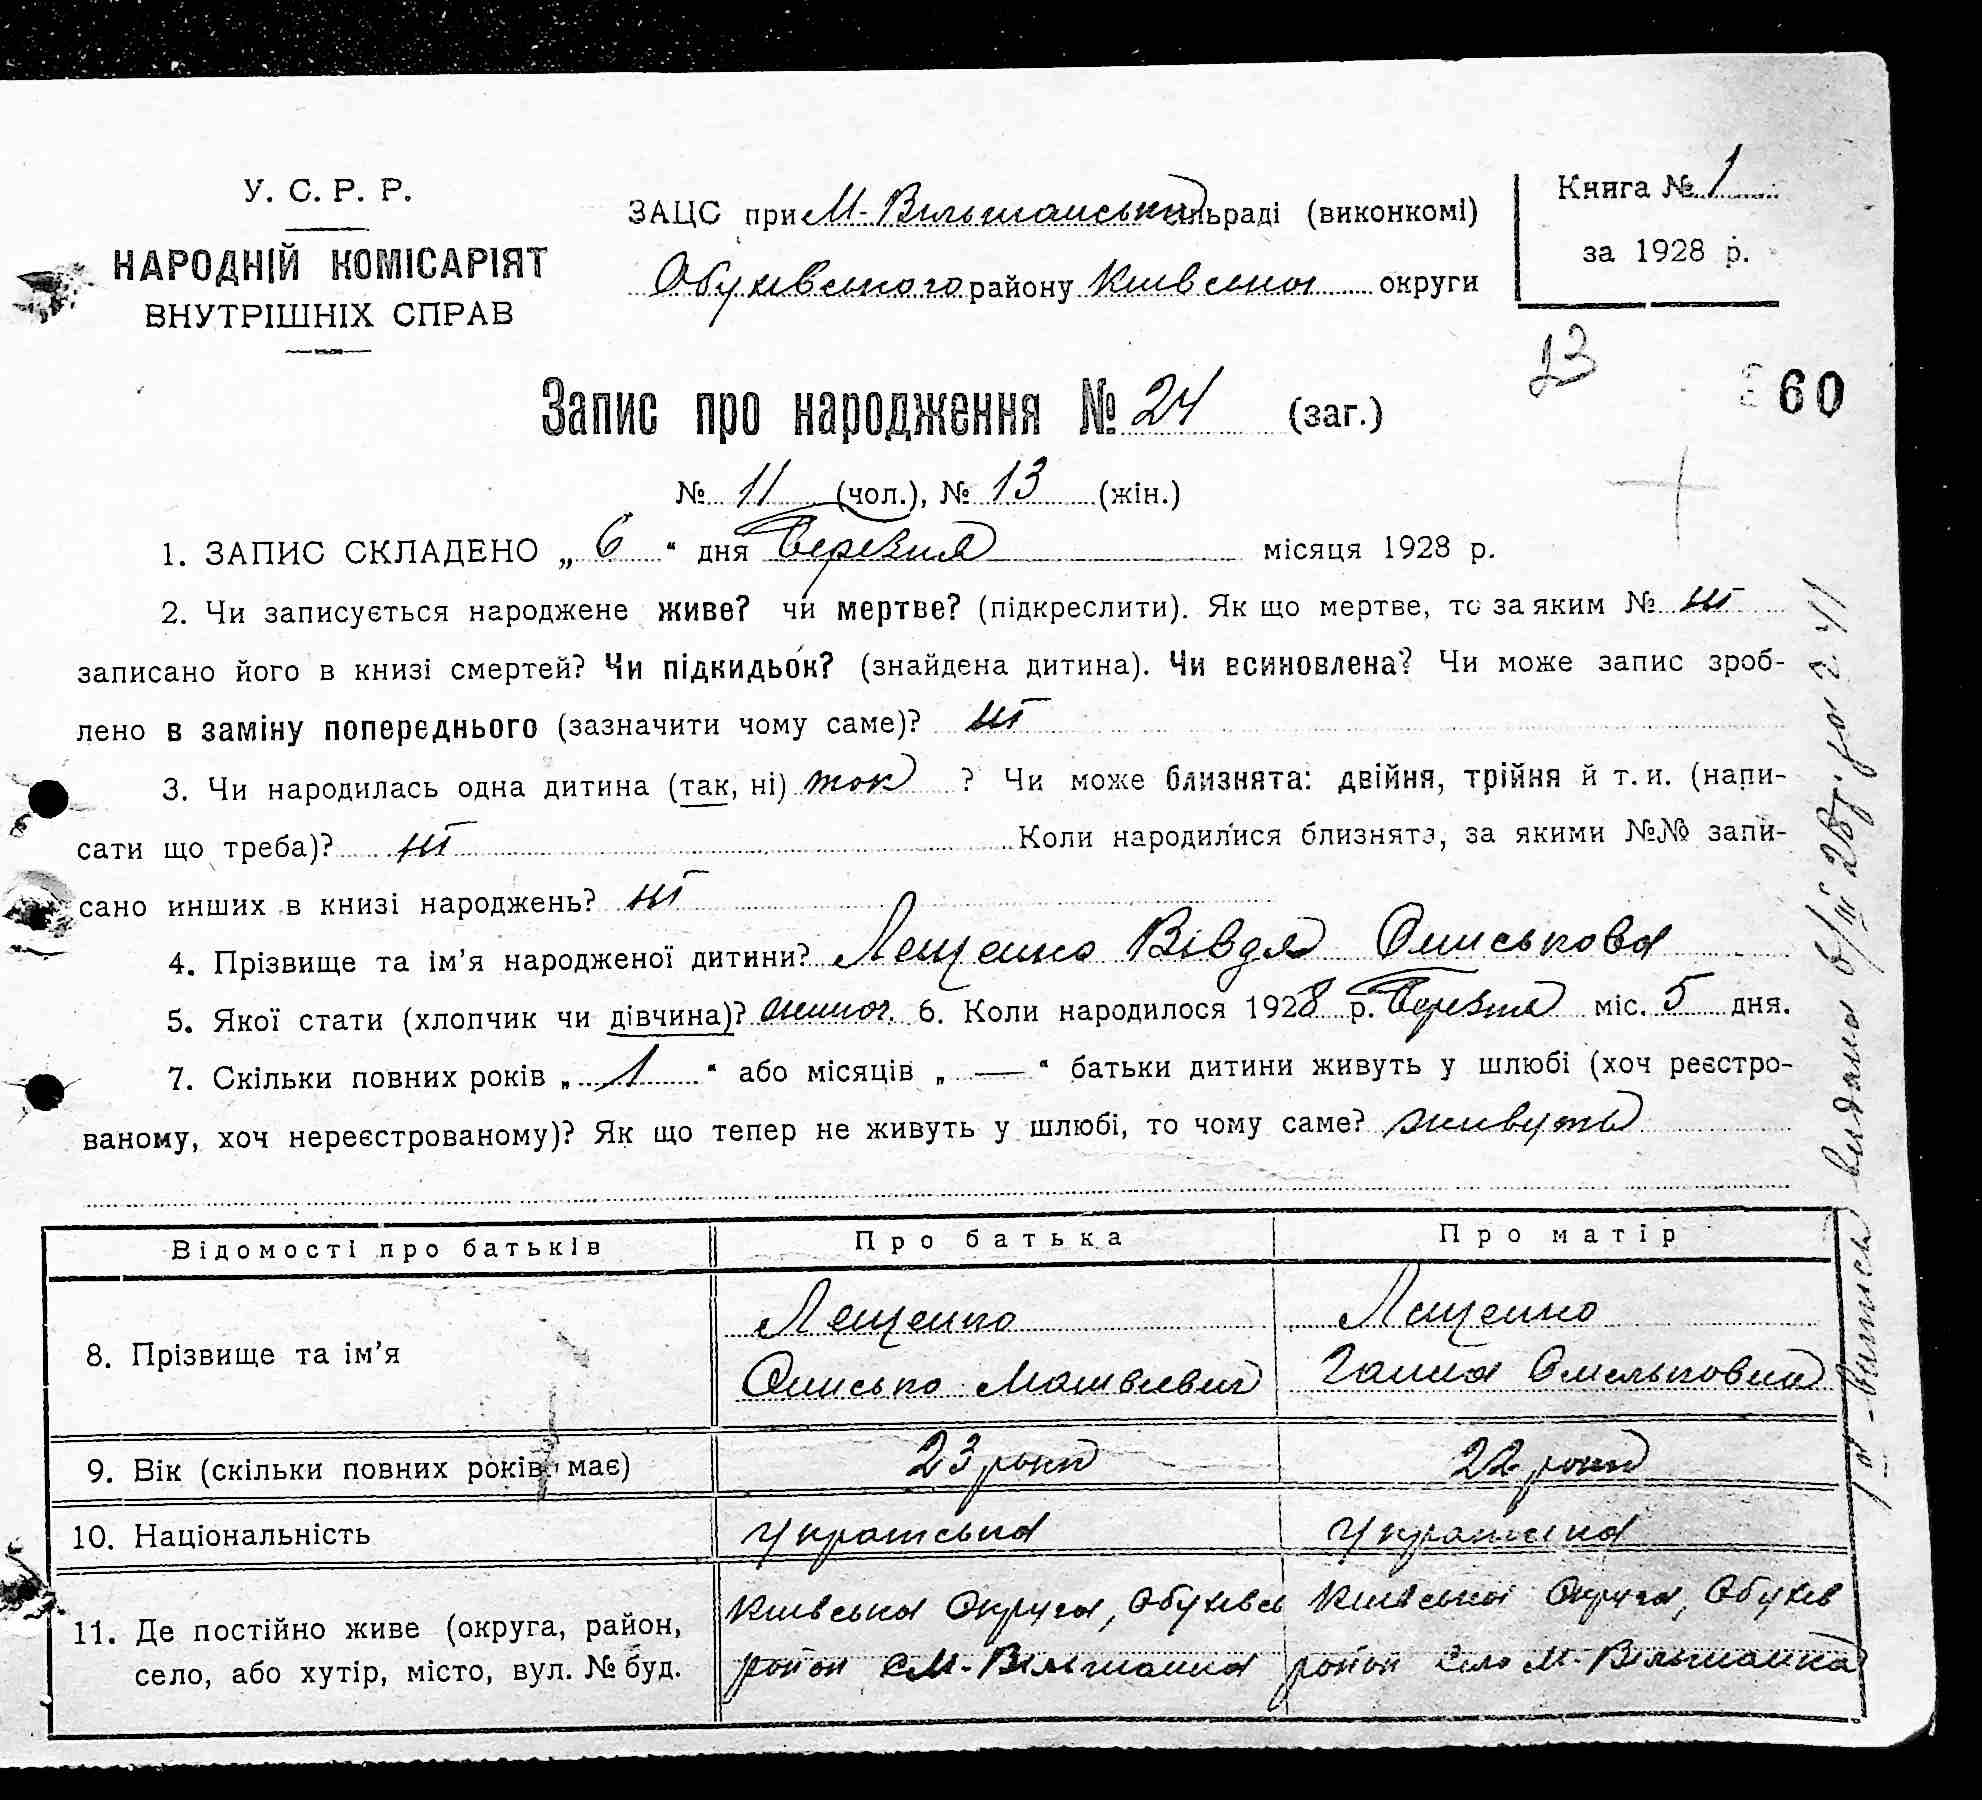 У. С. Р. Р.
НАРОДНІЙ КОМІСАРІЯТ
ВНУТРІШНІХ СПРАВ
ЗАЦС при М-Вільшанській сільраді (виконкомі)
Обухівського району Київської округи
Книга № 1
за 1928 р.
23
60
Запис про народження № 24 (заг.)
№ 11 (чол.), № 13 (жін.)
1. ЗАПИС СКЛАДЕНО „ 6 “ дня Березня місяця 1928 р.
2. Чи записується народжене живе? чи мертве? (підкреслити). Як що мертве, то за яким № ні
записано його в книзі смертей? Чи підкидьок? (знайдена дитина). Чи всиновлена? Чи може запис зроб-
лено в заміну попереднього (зазначити чому саме)? ні
3. Чи народилась одна дитина (так, ні) так ? Чи може близнята: двійня, трійня й т. и. (напи-
сати що треба)? ні Коли народилися близнята, за якими №№ запи-
сано инших в книзі народжень? ні
4. Прізвище та ім’я народженої дитини? Лещенко ВівдяОниськова
5. Якої стати (хлопчик чи дівчина)? жіноч. 6. Коли народилося 1928 р. Березня міс. 5 дня.
7. Скільки повних років „ 1 “ або місяців „ — “ батьки дитини живуть у шлюбі (хоч реєстро-
ваному, хоч нереєстрованому)? Як що тепер не живуть у шлюбі, то чому саме? живуть
Відомості про батьків Про батька Про матір
8. Прізвище та ім’я
Лещенко
Онисько Матвієвич
Лещенко
Ганна Омельковна
9. Вік (скільки повних років має) 23 роки 22 роки
10. Національність українська українська
11. Де постійно живе (округа, район,
село, або хутір, місто, вул. № буд.
Київська Округа, Обухівсь
район с М-Вільшанка
Київська Округа, Обухів
район село М-Вільшанка